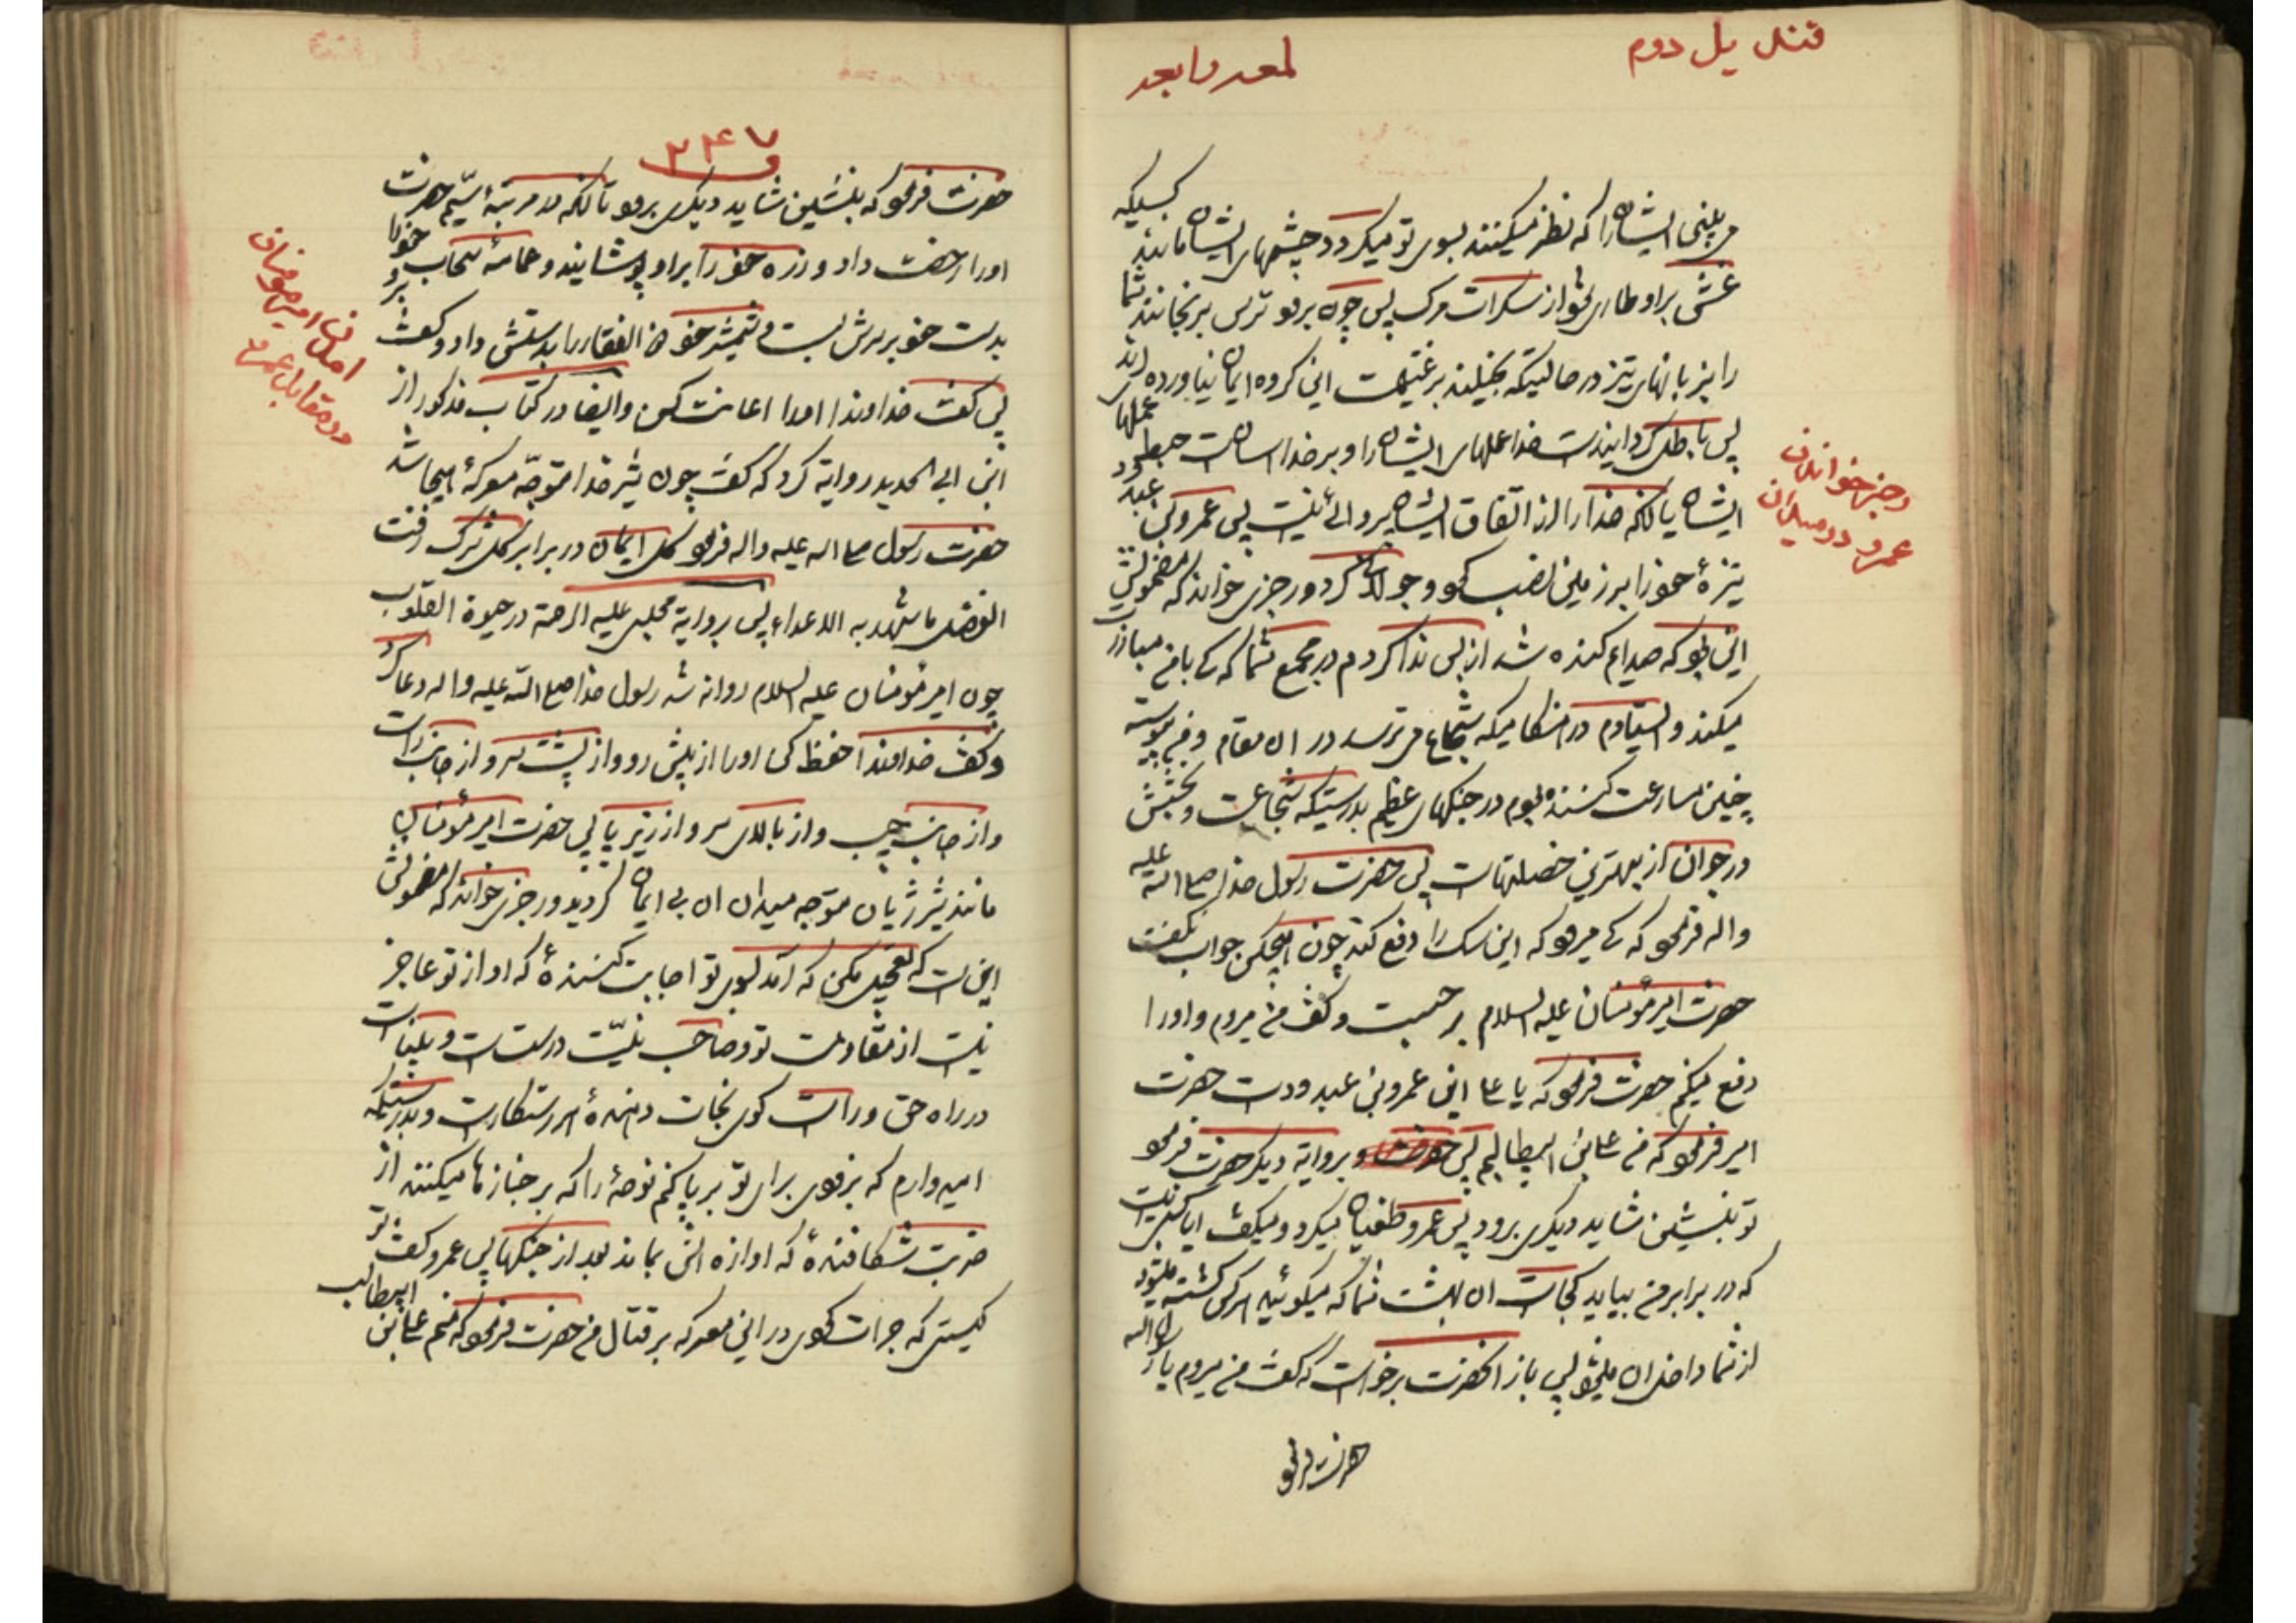 قندیل دوم
لمعه رابعه
می بینی ایشان را که نظر میکنند بسوی تو میگردد چشمهای ایشان مانند کسیکه
غشی بر او طاری شود از سکرات مرگ پس چون برود ترس برنجانند شما
را بزبانهای تیز در حالتیکه بخیلند بر غنیمت این گروه ایمان نیاورده اند
پس باطل گردانیدست خدا عملهای ایشان را و بر خدا آسان است حبط عملهای
ایشان یا آنکه خدا را از اتفاق ایشان پروائی نیست پس عمرو بن عبد ود
نیزهٔ خود را بر زمین نصب نمود و جولان کرد و رجزی خواند که مضمونش
این بود که صدایم کنده شد از بس ندا کردم در مجمع شما که کی با من مبارزت
میکند و ایستادم در هنگامیکه شجاع می ترسد در آن مقام و من پیوسته
چنین مسارعت کننده بودم در جنگهای عظیم بدرستیکه شجاعت و بخشش
در جوان از بهترین خصلتهاست پس حضرت رسول خدا صلی الله علیه
واله فرمود که کی میرود که این سگ را دفع کند چون هیچکس جواب نگفت
حضرت امیر مؤمنان علیه السلام برجست و گفت من میروم و او را
دفع میکنم حضرت فرمود که یا علی این عمرو بن عبد ود است حضرت
امیر فرمود که من علی بن ابیطالبم پس و بروایة دیگر حضرت فرمود
تو بنشین شاید دیگری برود پس عمرو طغیان میکرد و میگفت ایا کسی نیست
که در برابر من بیاید کجاست ان بهشت شما که میگوئید هر کس کشته میشود
از شما داخل ان میشود پس باز انحضرت برخاست که گفت من میروم یا رسول الله
حضرت فرمود
رجز خواندن
عمرو در میدان
۲۴۷
حضرت فرمود که بنشین شاید دیگری برود تا آنکه در مرتبهٔ سیّم حضرت
او را رخصت داد و زره خود را بر او پوشانید و عمامهٔ سحاب خود را
بدست خود بر سرش بست و شمشیر خود ذالفقار را بدستش داد و گفت برو
پس گفت خداوندا او را اعانت کن و ایضا در کتاب مذکور از
ابن ابی الحدید روایة کرد که گفت چون شیر خدا متوجّه معرکهٔ هیجا شد
حضرت رسول صلی الله علیه واله فرمود کل ایمان در برابر کل شرک رفت
الفضل ما شهد به الاعداء پس بروایة مجلسی علیه الرحمة در حیوة القلوب
چون امیر مؤمنان علیه السلام روانه شد رسول خدا صلی الله علیه واله دعا کرد
و گفت خداوندا حفظ کن او را از پیش رو و از پشت سر و از جانب راست
و از جانب چپ و از بالای سر و از زیر پا پس حضرت امیر مؤمنان
مانند شیر ژیان متوجه میدان ان بی ایمان گردید و رجزی خواند که مضمونش
این است که تعجیل مکن که آمد بسوی تو اجابت کنندهٔ که او از تو عاجز
نیست از مقاومت تو و صاحب نیّت درست است و بیناست
در راه حق و راست گوی نجات دهندهٔ هر رستکار است و بدرستیکه
امیدوارم که بزودی برای تو برپا کنم نوحهٔ را که بر جنازها میکنند از
ضربت شکافندهٔ که اوازهٔ اش بماند بعد از جنگها پس عمرو گفت تو
کیستی که جرات نمودی در این معرکه بر قتال من حضرت فرمود که منم علی بن ابیطالب
امدن امیر مؤمنان
در مقابل عمرو